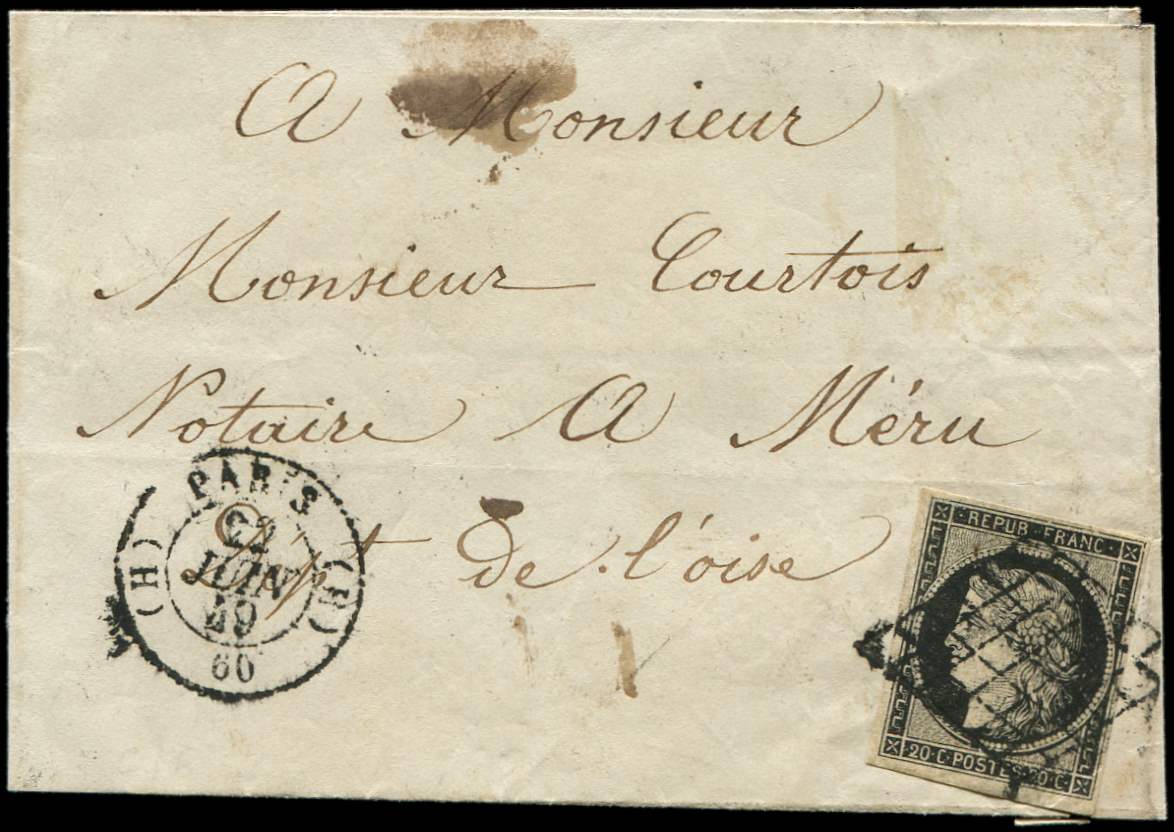 A Monsieur
Monsieur Courtois
Notaire A Méru
Dépt de l'oise
PARIS
(H) (H)
22
JUIN
49
60
REPUB. FRANC.
20·C·POSTES·20·C